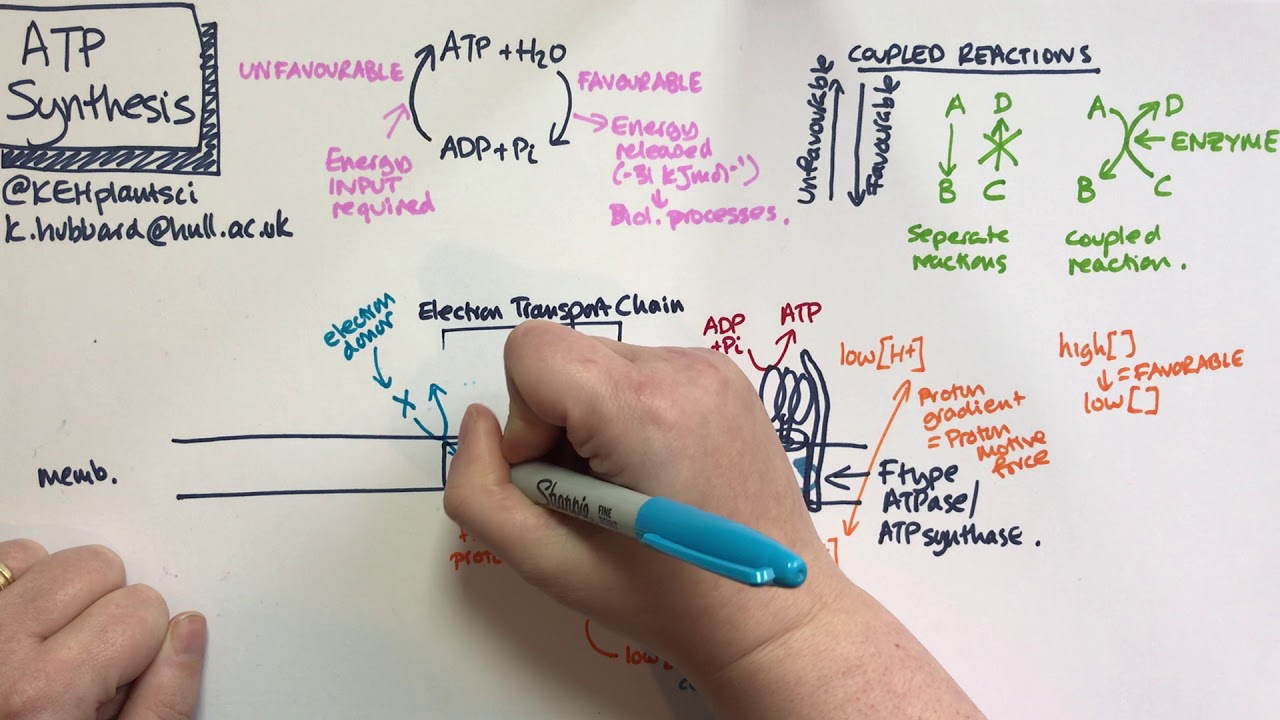 ATP
Synthesis
@KEHplantsci
k.hubbard@hull.ac.uk
UNFAVOURABLE
ATP + H2O
ADP + Pi
Energy
INPUT
required
FAVOURABLE
Energy
released
(-31 kJmol-1)
Biol. processes.
COUPLED REACTIONS
Unfavourable
Favourable
A D
B C
Seperate
reactions
A D
ENZYME
B C
Coupled
reaction.
Electron Transport Chain
electron
donor
X
memb.
ADP
+Pi
ATP
low [H+]
Proton
gradient
= Proton
Motive
force
high []
= FAVORABLE
low []
F type
ATPase/
ATP synthase.
low